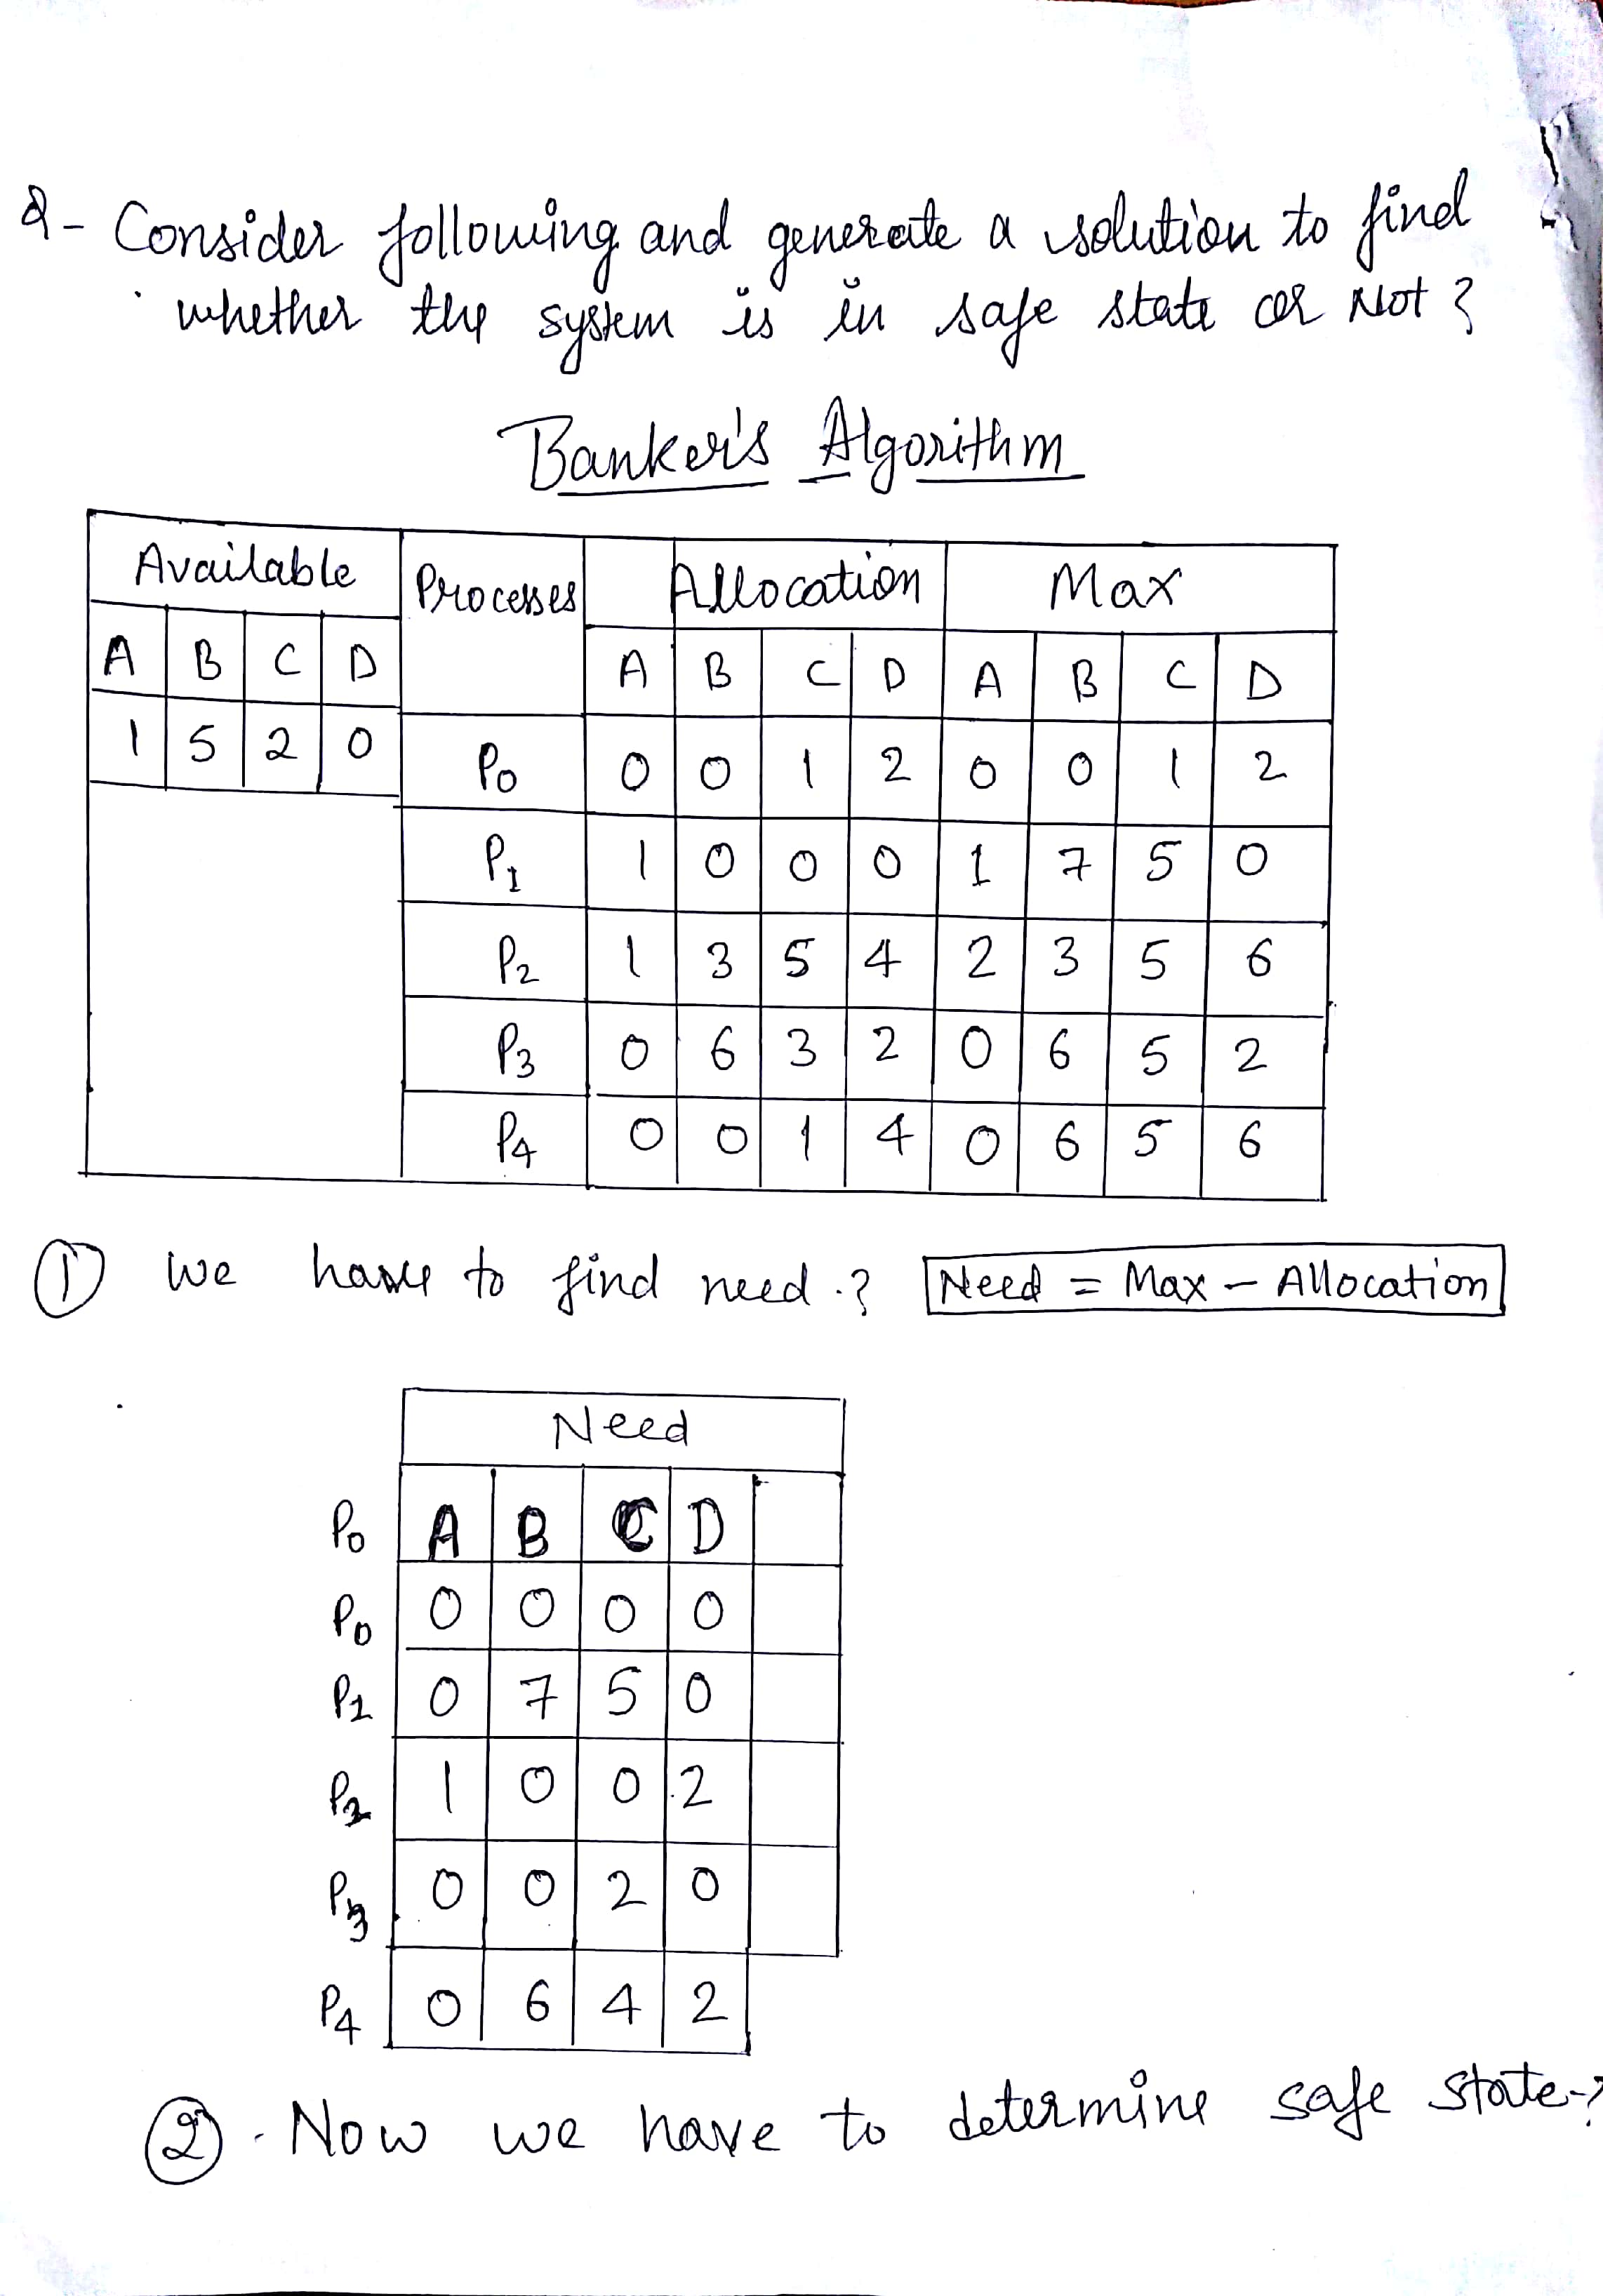 Q- Consider following and generate a solution to find
whether the system is in safe state or Not ?
Banker's Algorithm
Available Processes Allocation Max
A B C D A B C D A B C D
1 5 2 0 P0 0 0 1 2 0 0 1 2
P1 1 0 0 0 1 7 5 0
P2 1 3 5 4 2 3 5 6
P3 0 6 3 2 0 6 5 2
P4 0 0 1 4 0 6 5 6
① we have to find need.? Need = Max - Allocation
Need
P0 A B C D
P0 0 0 0 0
P1 0 7 5 0
P2 1 0 0 2
P3 0 0 2 0
P4 0 6 4 2
②. Now we have to determine safe state-?